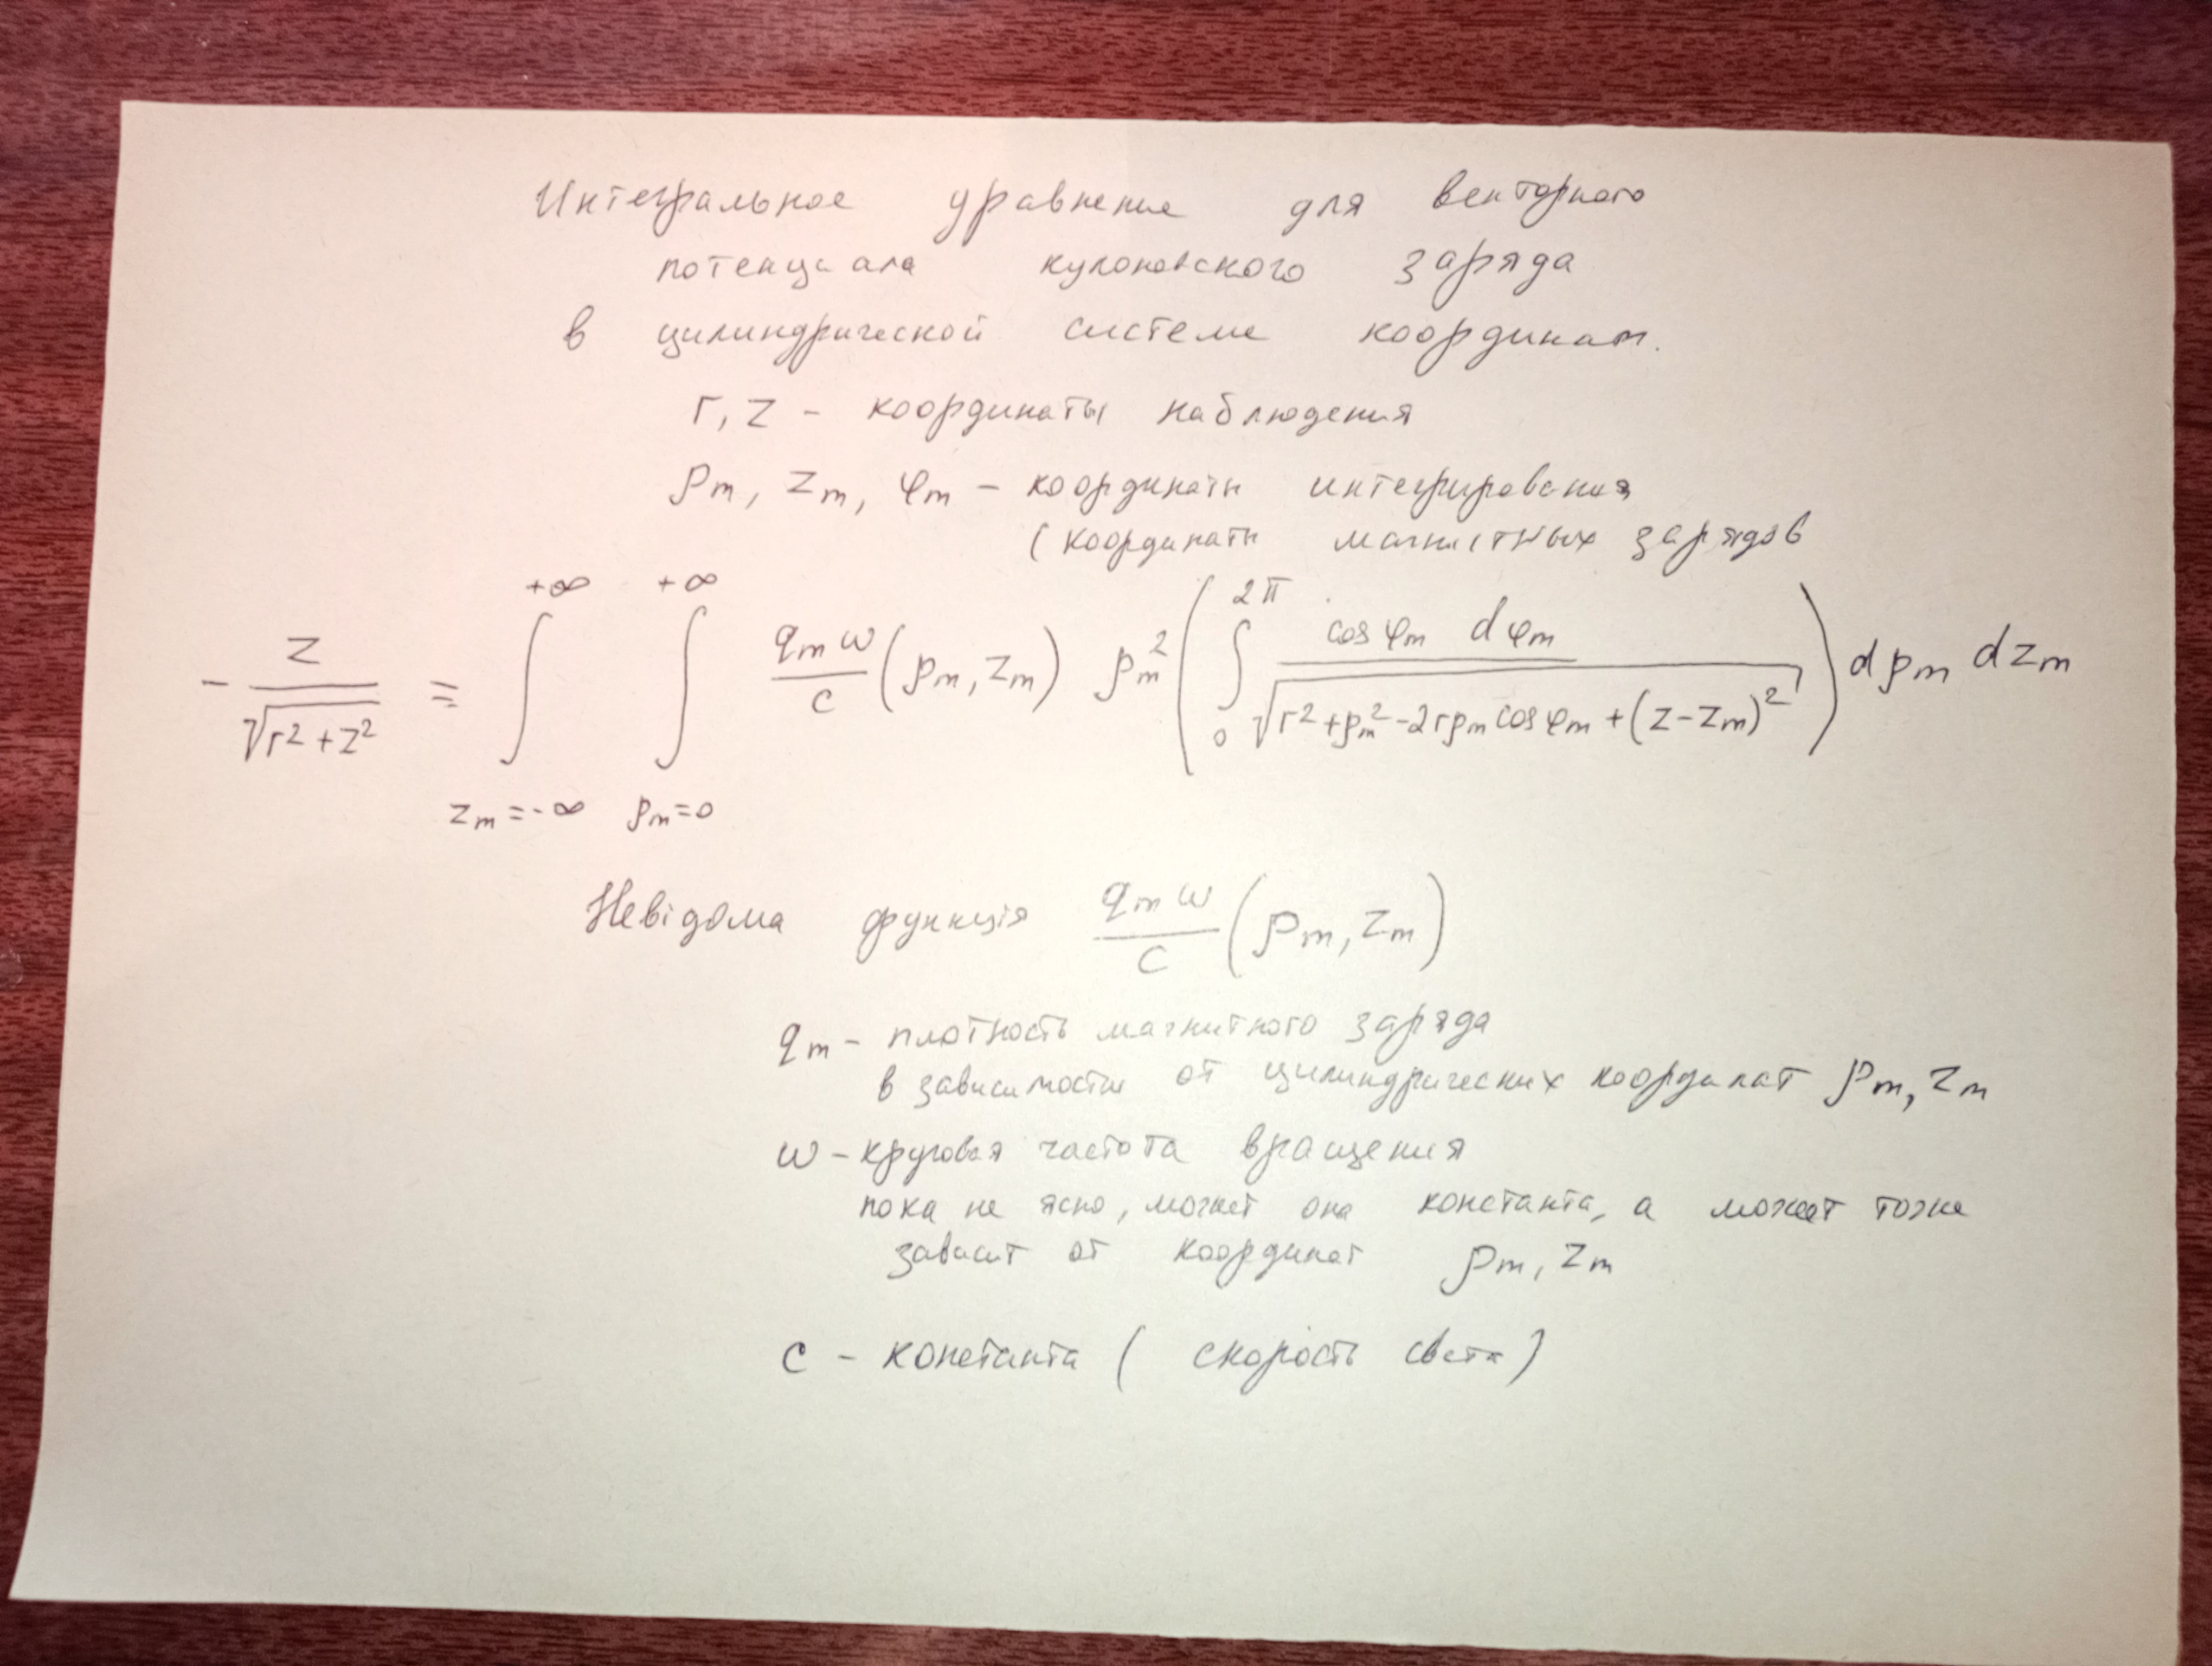 Интегральное уравнение для векторного
потенциала кулоновского заряда
в цилиндрической системе координат.
r, z - координаты наблюдения
ρm, zm, φm - координаты интегрирования
(координаты магнитных зарядов
- z / √(r² + z²) = ∫_{zm=-∞}^{+∞} ∫_{ρm=0}^{+∞} (qm ω / c) (ρm, zm) ρm² ( ∫_0^{2π} cos φm dφm / √(r² + ρm² - 2rρm cos φm + (z - zm)²) ) dρm dzm
Невідома функція (qm ω / c) (ρm, zm)
qm - плотность магнитного заряда
в зависимости от цилиндрических координат ρm, zm
ω - круговая частота вращения
пока не ясно, может она константа, а может тоже
зависит от координат ρm, zm
c - константа ( скорость света)